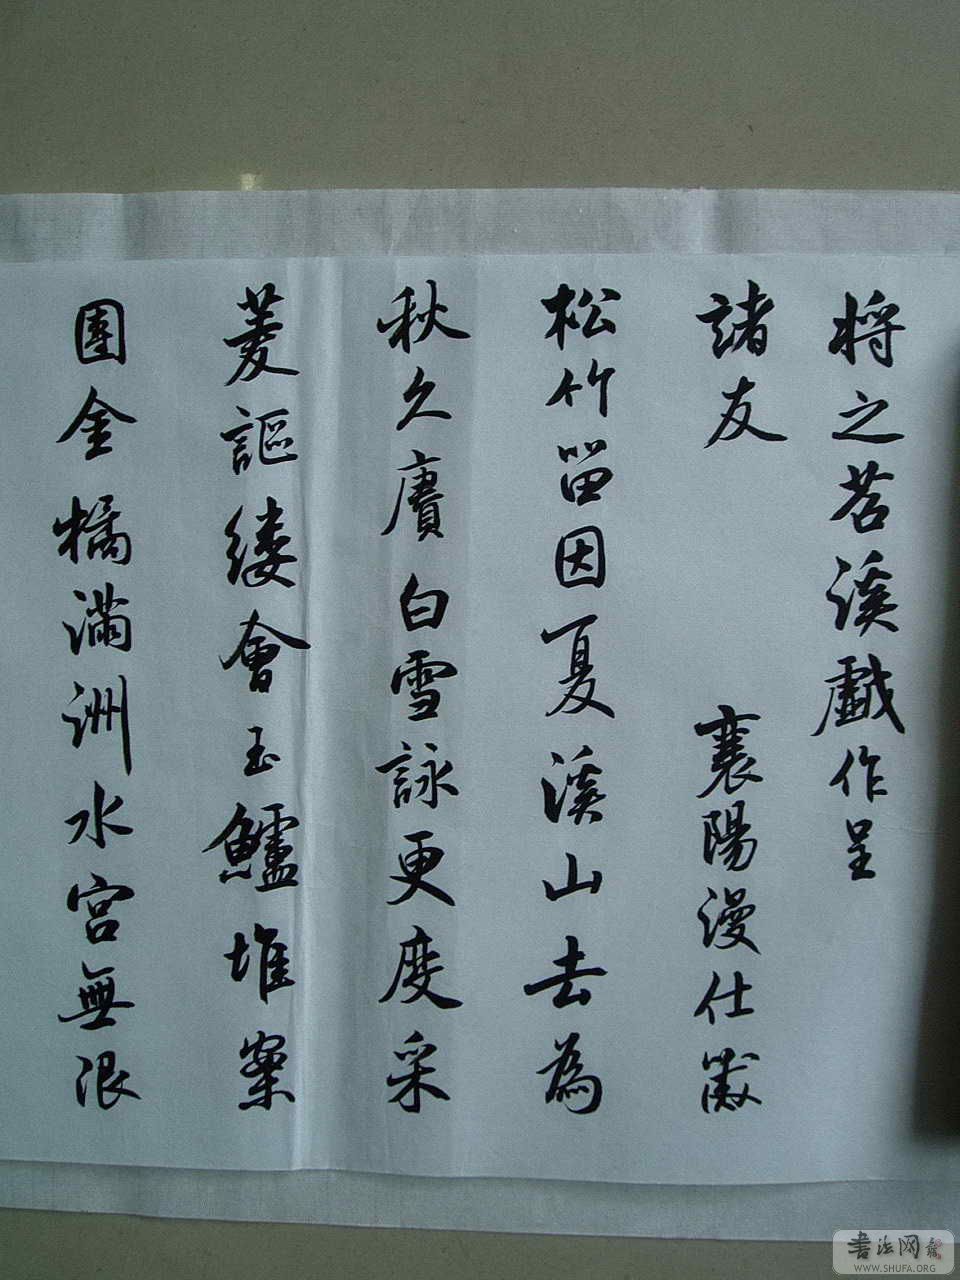 将之苕溪戲作呈
諸友
襄陽漫仕黻
松竹留因夏溪山去為
秋久賡白雪詠更度采
菱謳縷會玉鱸堆案
團金橘滿洲水宮無限
書法网
WWW.SHUFA.ORG